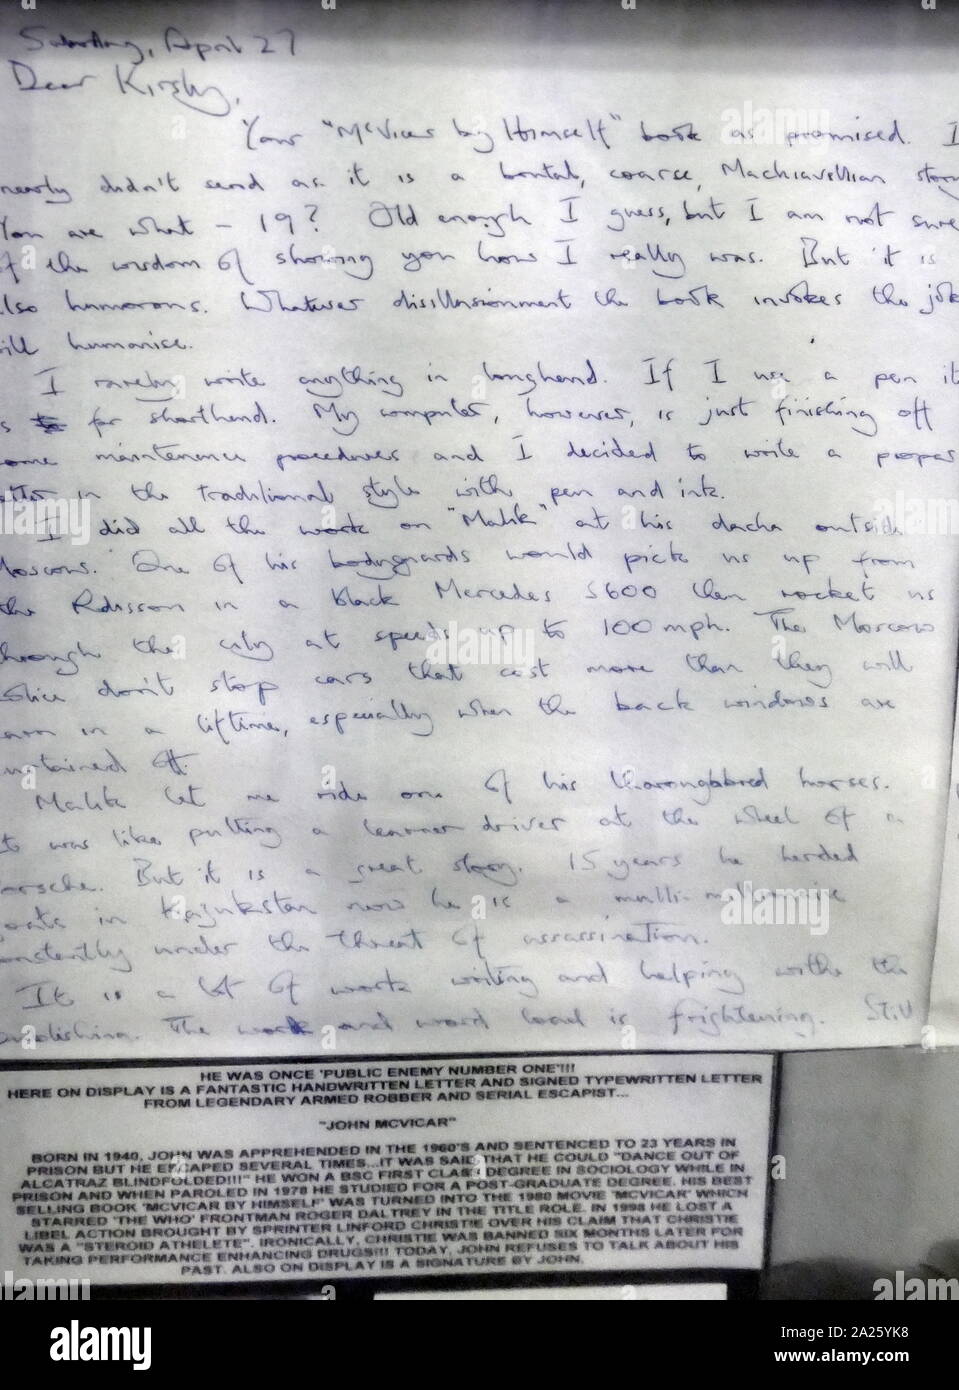 Saturday, April 27
Dear Kirsty,
Your "McVicar by Himself" book as promised. I
nearly didn't send as it is a brutal, coarse, Machiavellian story
You are what - 19? Old enough I guess, but I am not sure
of the wisdom of showing you how I really was. But it is
also humorous. Whatever disillusionment the book invokes the jok
ill humanise.
I rarely write anything in longhand. If I use a pen it
s for shorthand. My computer, however, is just finishing off
ome maintenence procedures and I decided to write a proper
etter in the traditional style with pen and ink.
I did all the work on "Malik" at his dacha outside
Moscow. One of his bodyguards would pick us up from
the Radisson in a black Mercedes S600 then rocket us
through the city at speeds up to 100 mph. The Moscow
olice don't stop cars that cost more than they will
earn in a liftime, especially when the back windows are
urtained off.
Malik let me ride one of his thoroughbred horses.
It was like putting a learner driver at the wheel of a
Porsche. But it is a great story. 15 years he herded
goats in Kazakstan now he is a multi-millionaire
onstantly under the threat of assassination.
It is a lot of work writing and helping with the
publishing. The work and word load is frightening. Still
HE WAS ONCE 'PUBLIC ENEMY NUMBER ONE'!!!
HERE ON DISPLAY IS A FANTASTIC HANDWRITTEN LETTER AND SIGNED TYPEWRITTEN LETTER
FROM LEGENDARY ARMED ROBBER AND SERIAL ESCAPIST...
"JOHN MCVICAR"
BORN IN 1940, JOHN WAS APPREHENDED IN THE 1960'S AND SENTENCED TO 23 YEARS IN
PRISON BUT HE ESCAPED SEVERAL TIMES...IT WAS SAID THAT HE COULD "DANCE OUT OF
ALCATRAZ BLINDFOLDED!!!" HE WON A BSC FIRST CLASS DEGREE IN SOCIOLOGY WHILE IN
PRISON AND WHEN PAROLED IN 1978 HE STUDIED FOR A POST-GRADUATE DEGREE. HIS BEST
SELLING BOOK 'MCVICAR BY HIMSELF' WAS TURNED INTO THE 1980 MOVIE 'MCVICAR' WHICH
STARRED 'THE WHO' FRONTMAN ROGER DALTREY IN THE TITLE ROLE. IN 1998 HE LOST A
LIBEL ACTION BROUGHT BY SPRINTER LINFORD CHRISTIE OVER HIS CLAIM THAT CHRISTIE
WAS A "STEROID ATHELETE". IRONICALLY, CHRISTIE WAS BANNED SIX MONTHS LATER FOR
TAKING PERFORMANCE ENHANCING DRUGS!!! TODAY, JOHN REFUSES TO TALK ABOUT HIS
PAST. ALSO ON DISPLAY IS A SIGNATURE BY JOHN.
alamy
Image ID: 2A25YK8
www.alamy.com